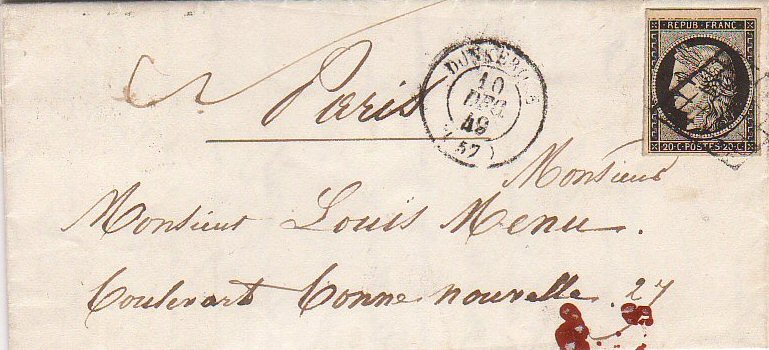 REPUB·FRANC·
DUNKERQUE
10
DEC.
49
(57)
20·C·POSTES·20·C·
Paris
Monsieur
Monsieur Louis Menu.
Boulevart Bonne nouvelle. 27